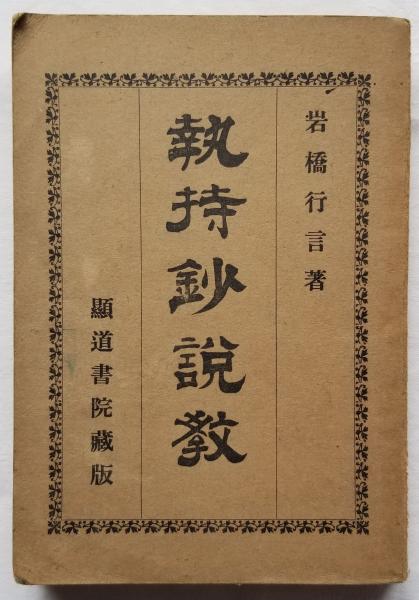 岩橋行言著
執持鈔說敎
顯道書院藏版